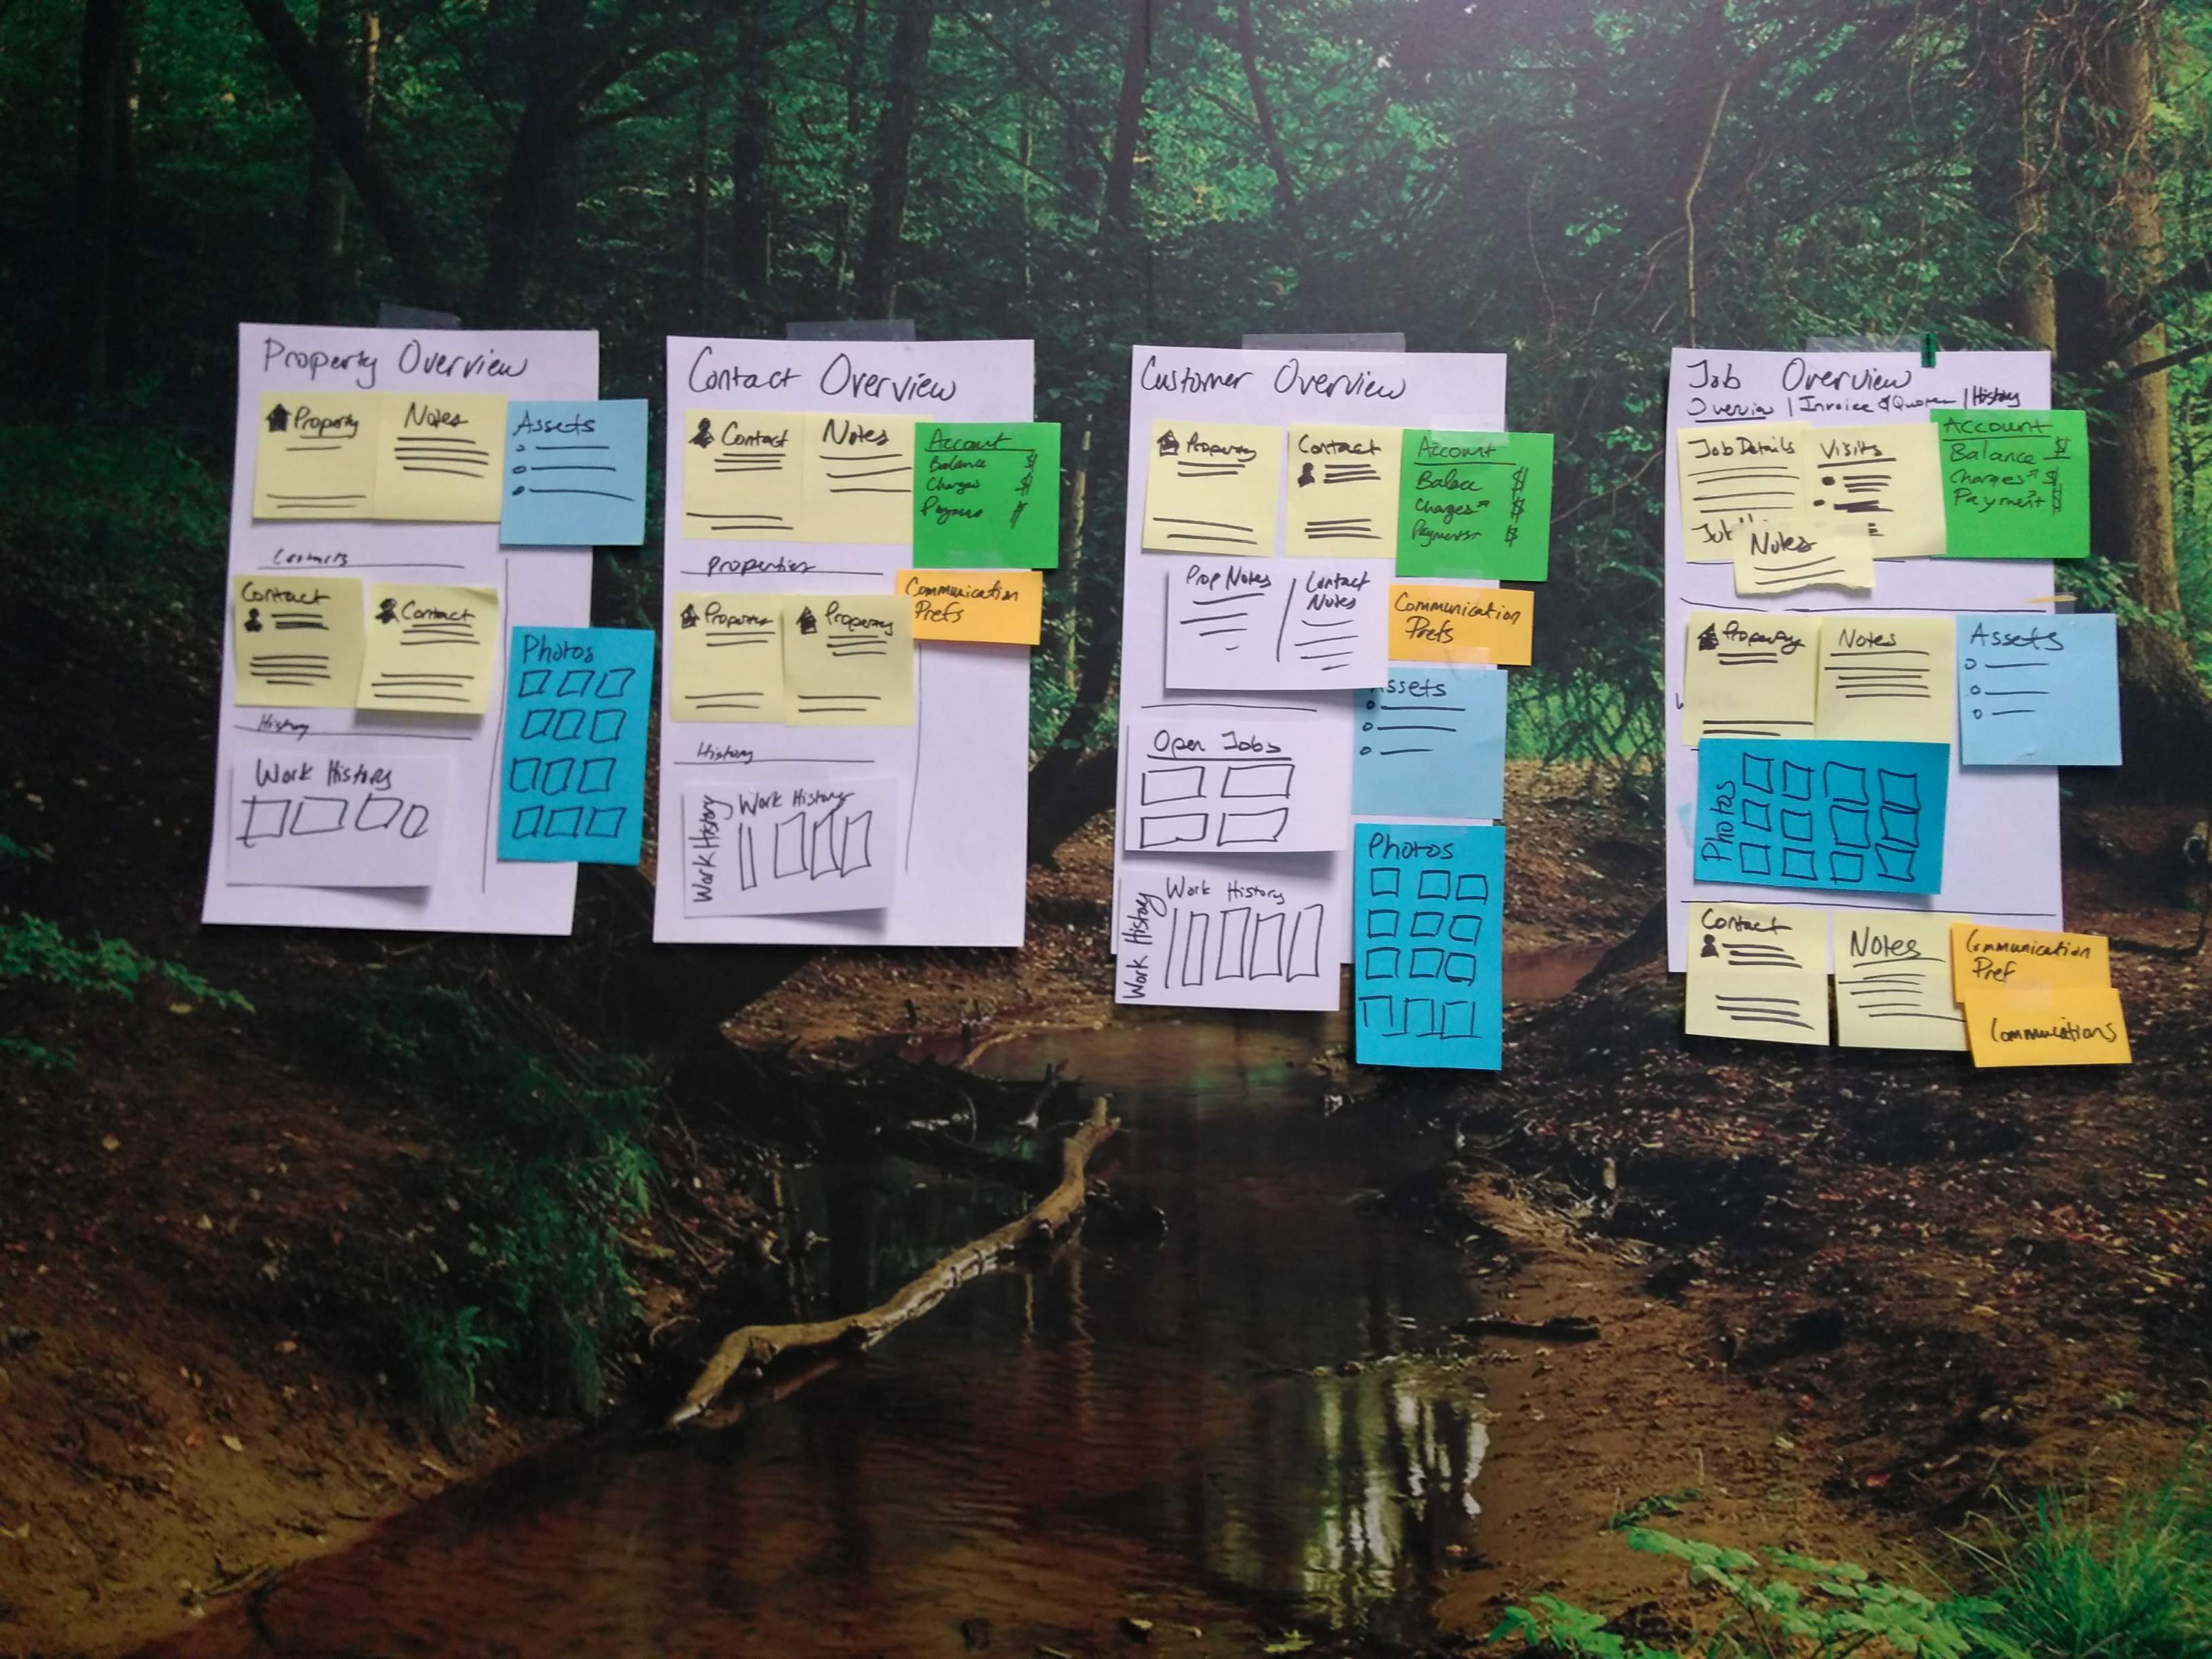 Property Overview
Property
Notes
Assets
Contacts
Contact
Contact
History
Work History
Photos
Contact Overview
Contact
Notes
Account
Balance $
Charges $
Properties
Communication
Prefs
Property
Property
History
Work History
Work History
Customer Overview
Property
Contact
Account
Balace $
Charges $
Payments $
Prop Notes
Contact
Notes
Communication
Prefs
ssets
Open Jobs
Photos
Work History
Work History
Job Overview
Overview | Invoice & | History
Job Details
Visits
Account
Balance $
Charges $
Payment $
Job
Notes
Property
Notes
Assets
Photos
Contact
Notes
Communication
Pref
Communications